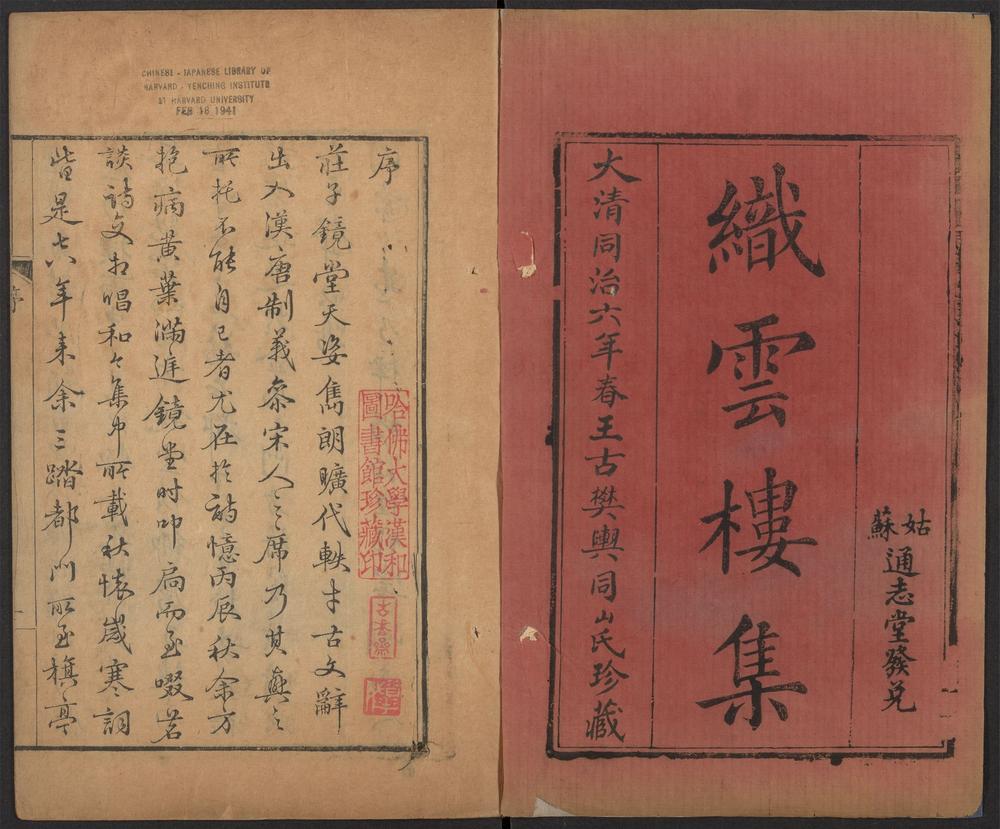 姑蘇
通志堂發兌
織雲樓集
大清同治六年春王古樊輿同山民珍藏
CHINESE - JAPANESE LIBRARY OF
HARVARD - YENCHING INSTITUTE
AT HARVARD UNIVERSITY
FEB 16 1941
序
莊子鏡堂天姿雋朗曠代軼才古文辭
出入漢唐制義參宋人之席乃其興之
所托不能自已者尤在於詩憶丙辰秋余方
抱病黃葉滿庭鏡堂時叩扃而至啜茗
談詩文相唱和々集中所載秋懷歲寒詞
皆是七八年來余三踏都門所至旗亭
哈佛大學漢和
圖書館珍藏印
序